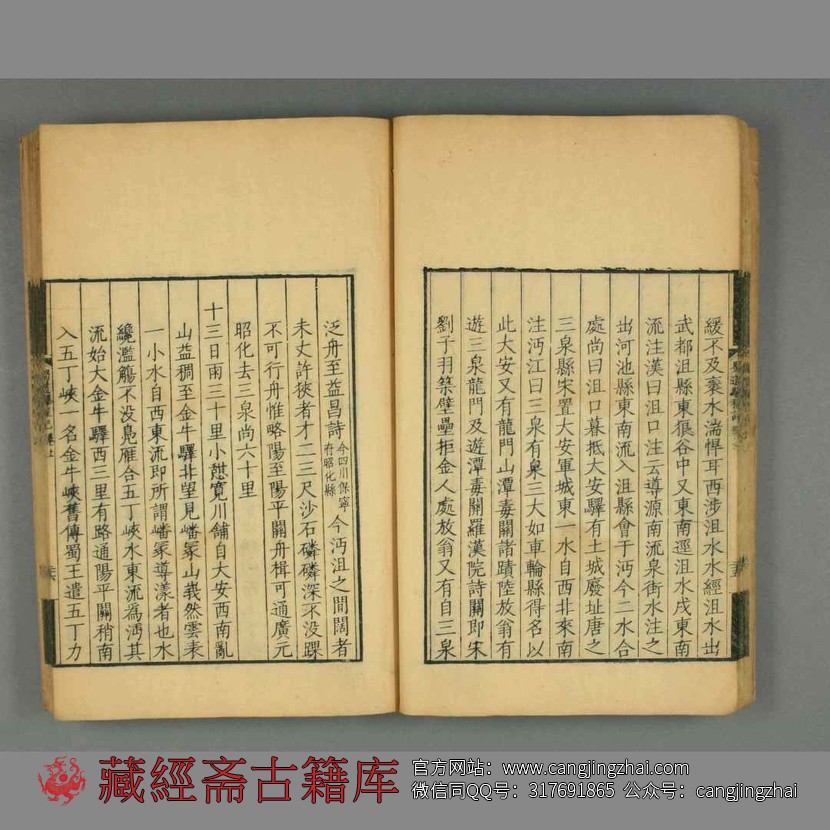 緩不及褒水湍悍耳西涉沮水水經沮水出
武都沮縣東狼谷中又東南逕沮水戍東南
流注漢曰沮口注云導源南流泉街水注之
出河池縣東南流入沮縣會于沔今二水合
處尚曰沮口暮抵大安驛有土城廢址唐之
三泉縣宋置大安軍城東一水自西北來南
注沔江曰三泉有泉三大如車輪縣得名以
此大安又有龍門山潭毒關諸蹟陸放翁有
遊三泉龍門及遊潭毒關羅漢院詩關即宋
劉子羽築壁壘拒金人處放翁又有自三泉
泛舟至益昌詩今四川保寧府昭化縣今沔沮之間闊者
未丈許狹者才二三尺沙石磷磷深不没踝
不可行舟惟略陽至陽平關舟楫可通廣元
昭化去三泉尚六十里
十三日雨三十里小憇寬川舖自大安西南亂
山益稠至金牛驛北望見嶓冢山峩然雲表
一小水自西東流即所謂嶓冢導漾者也水
纔濫觴不没鳧雁合五丁峽水東流為沔其
流始大金牛驛西三里有路通陽平關稍南
入五丁峽一名金牛峽舊傳蜀王遣五丁力
藏經斋古籍库
官方网站：www.cangjingzhai.com
微信同QQ号：317691865 公众号：cangjingzhai